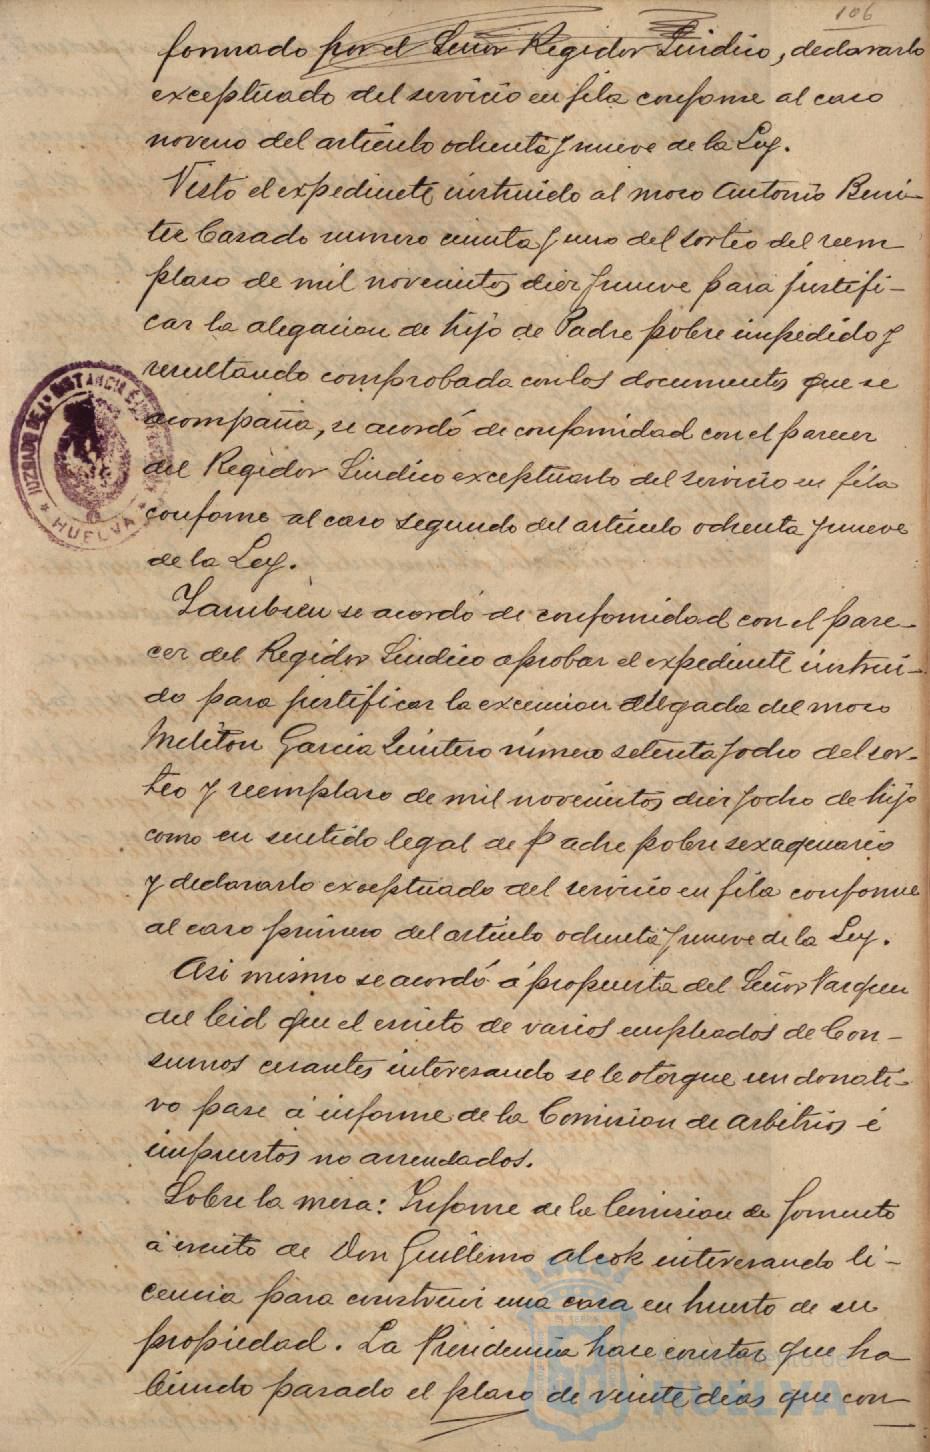 106
formado por el Señor Regidor Sindico, declararlo
exceptuado del servicio en fila conforme al caso
noveno del articulo ochenta y nueve de la Ley.
Visto el expediente instruido al moso Antonio Beni-
tez Casado numero cuenta y uno del sorteo del reem
plaso de mil novecientos diez y nueve para justifi-
car la alegacion de hijo de Padre pobre impedido y
resultando comprobada con los documentos que se
acompaña, se acordó de conformidad con el parecer
del Regidor Sindico exceptuarlo del servicio en fila
conforme al caso segundo del articulo ochenta y nueve
de la Ley.
Tambien se acordó de conformidad con el pare-
cer del Regidor Sindico aprobar el expediente instrui-
do para justificar la excencion alegada del moso
Meliton Garcia Quintero número setenta y ocho del sor-
teo y reemplaso de mil novecientos diez y ocho de hijo
como en sentido legal de Padre pobre sexagenario
y declararlo exceptuado del servicio en fila conforme
al caso primero del articulo ochenta y nueve de la Ley.
Asi mismo se acordó á propuesta del Señor Vazquez
del Cid que el escrito de varios empleados de Con-
sumos cesantes interesando se le otorgue un donati-
vo pase á informe de la Comision de arbitrios é
impuestos no arrendados.
Sobre la mesa: Informe de la Comision de Fomento
á escrito de Don Guillermo Alcok interesando li-
cencia para construir una casa en huerto de su
propiedad. La Presidencia hase constar que ha
biendo pasado el plaso de veinte dias que con-
JUZGADO DE 1ª INSTANCIA É
* HUELVA *
Ayuntamiento de
HUELVA